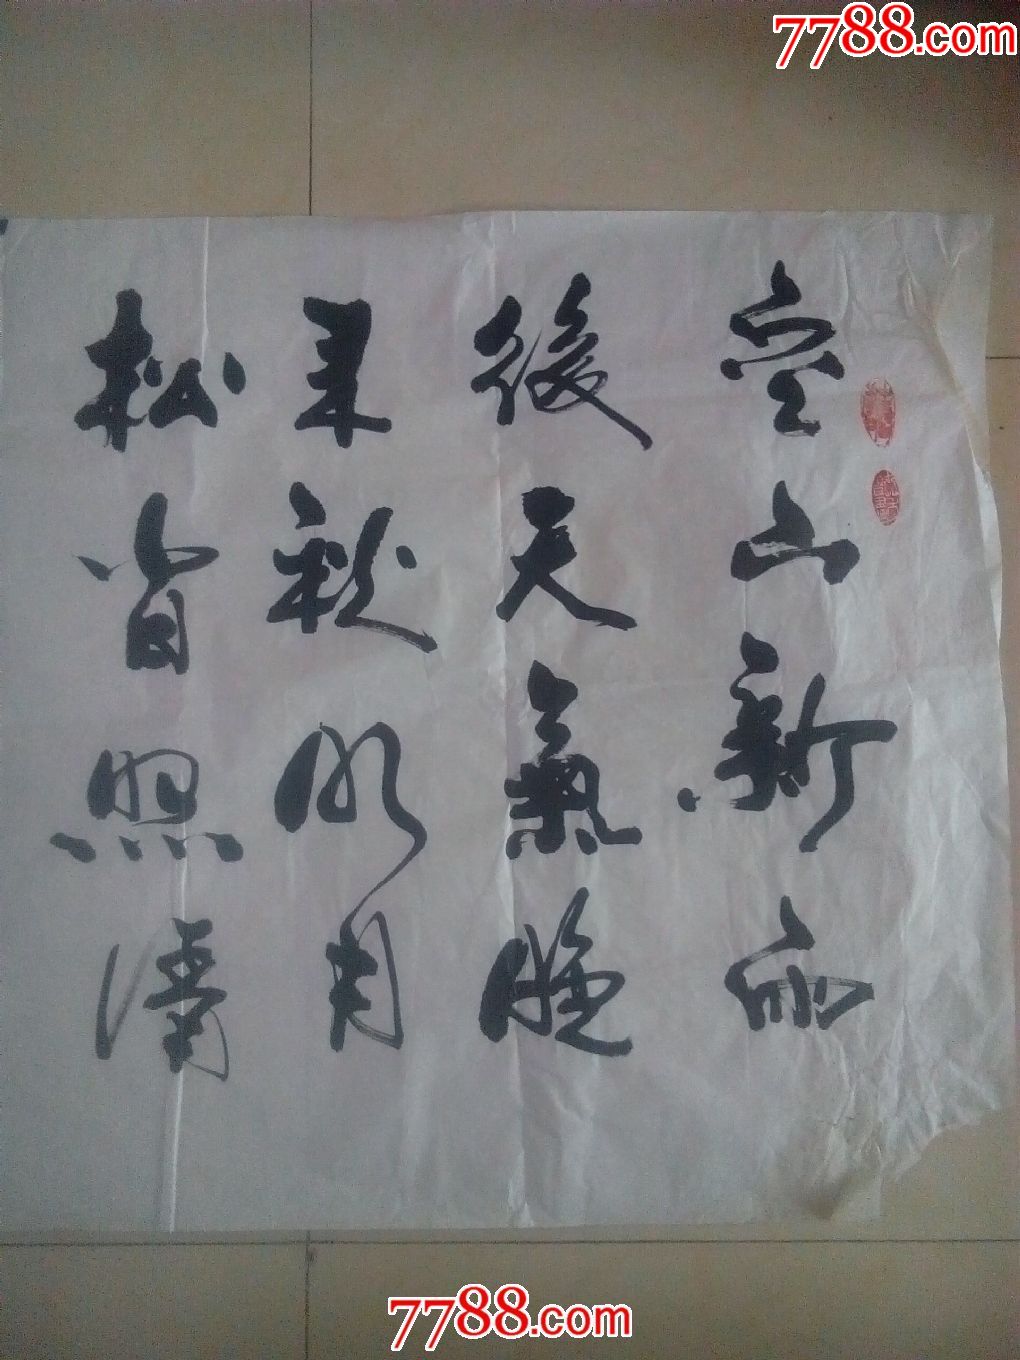 7788.com
空山新雨
後天氣晚
来秋明月
松皆照清
7788.com